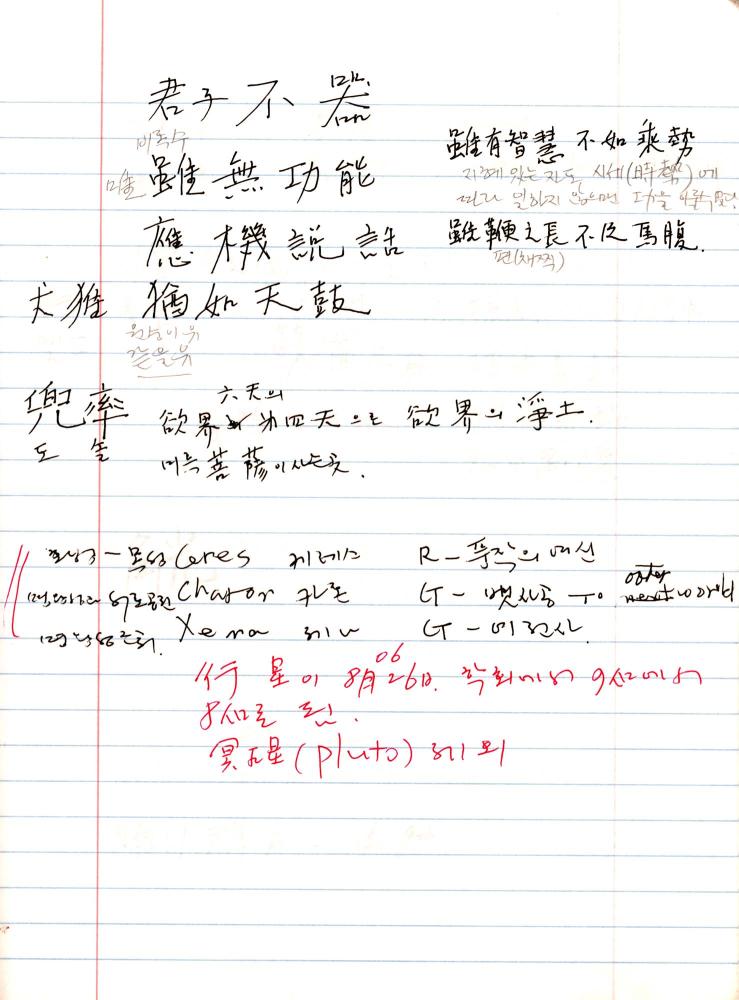 君子不器
비록수
雖無功能
應機說話
犬猶 猶如天鼓
원숭이 유
같을 유
雖有智慧 不如乘勢
지혜 있는 자도 시세(時勢)에
따라 일하지 않으면 공을 이룰 수 없다.
雖鞭之長 不及馬腹.
편(채찍)
兜率
도 솔
六天의
欲界 第四天으로 欲界의 淨土.
미륵菩薩이 사는 곳.
목성 Ceres 케레스 R - 풍작의 여신
Charon 카론 G - 뱃사공 to world
Xena 제나 G - 여전사
行星이 06 8月 26日. 학회에서 9개에서
8개로 됨.
冥王星 (pluto) 제외